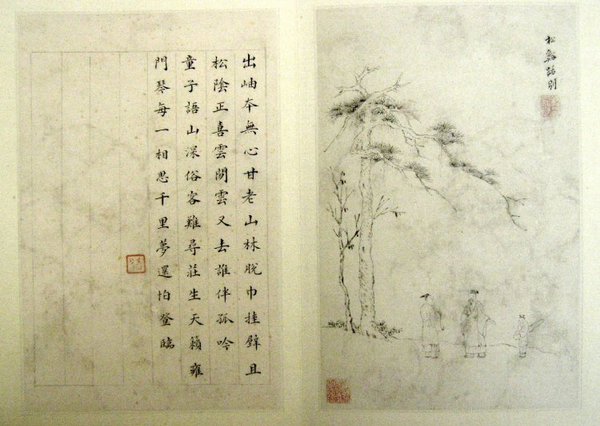 松話別
出岫本無心甘老山林脫巾挂壁且
松陰正喜雲閒雲又去誰伴孤吟
童子語山深俗客難尋莊生天籟雍
門琴每一相思千里夢還怕登臨